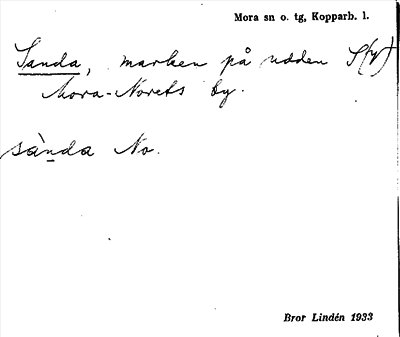 Mora sn o. tg, Kopparb. l.
Sanda, marken på udden S (y)
Mora-Norets by.
sànda No.
Bror Lindén 1933